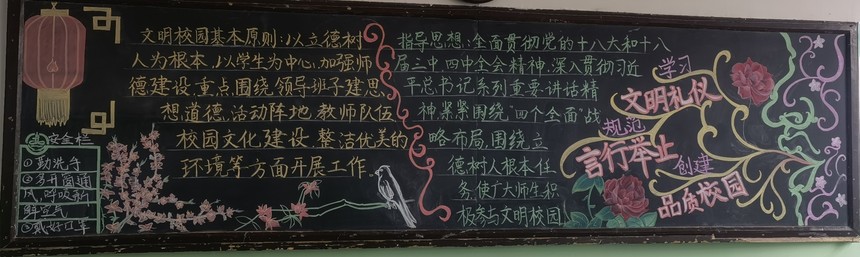 文明校园基本原则:以立德树
人为根本,以学生为中心,加强师
德建设,重点围绕,领导班子建思
想道德、活动阵地、教师队伍
校园文化建设,整洁优美的
环境等方面开展工作.
指导思想:全面贯彻党的十八大和十八
届三中、四中全会精神,深入贯彻习近
平总书记系列重要讲话精
神紧紧围绕"四个全面"战
略布局,围绕立
德树人根本任
务,使广大师生积
极参与文明校园
学习
文明礼仪
规范
言行举止
创建
品质校园
安全栏
①勤洗手
②多开窗通
风,呼吸新
鲜空气
③戴好口罩